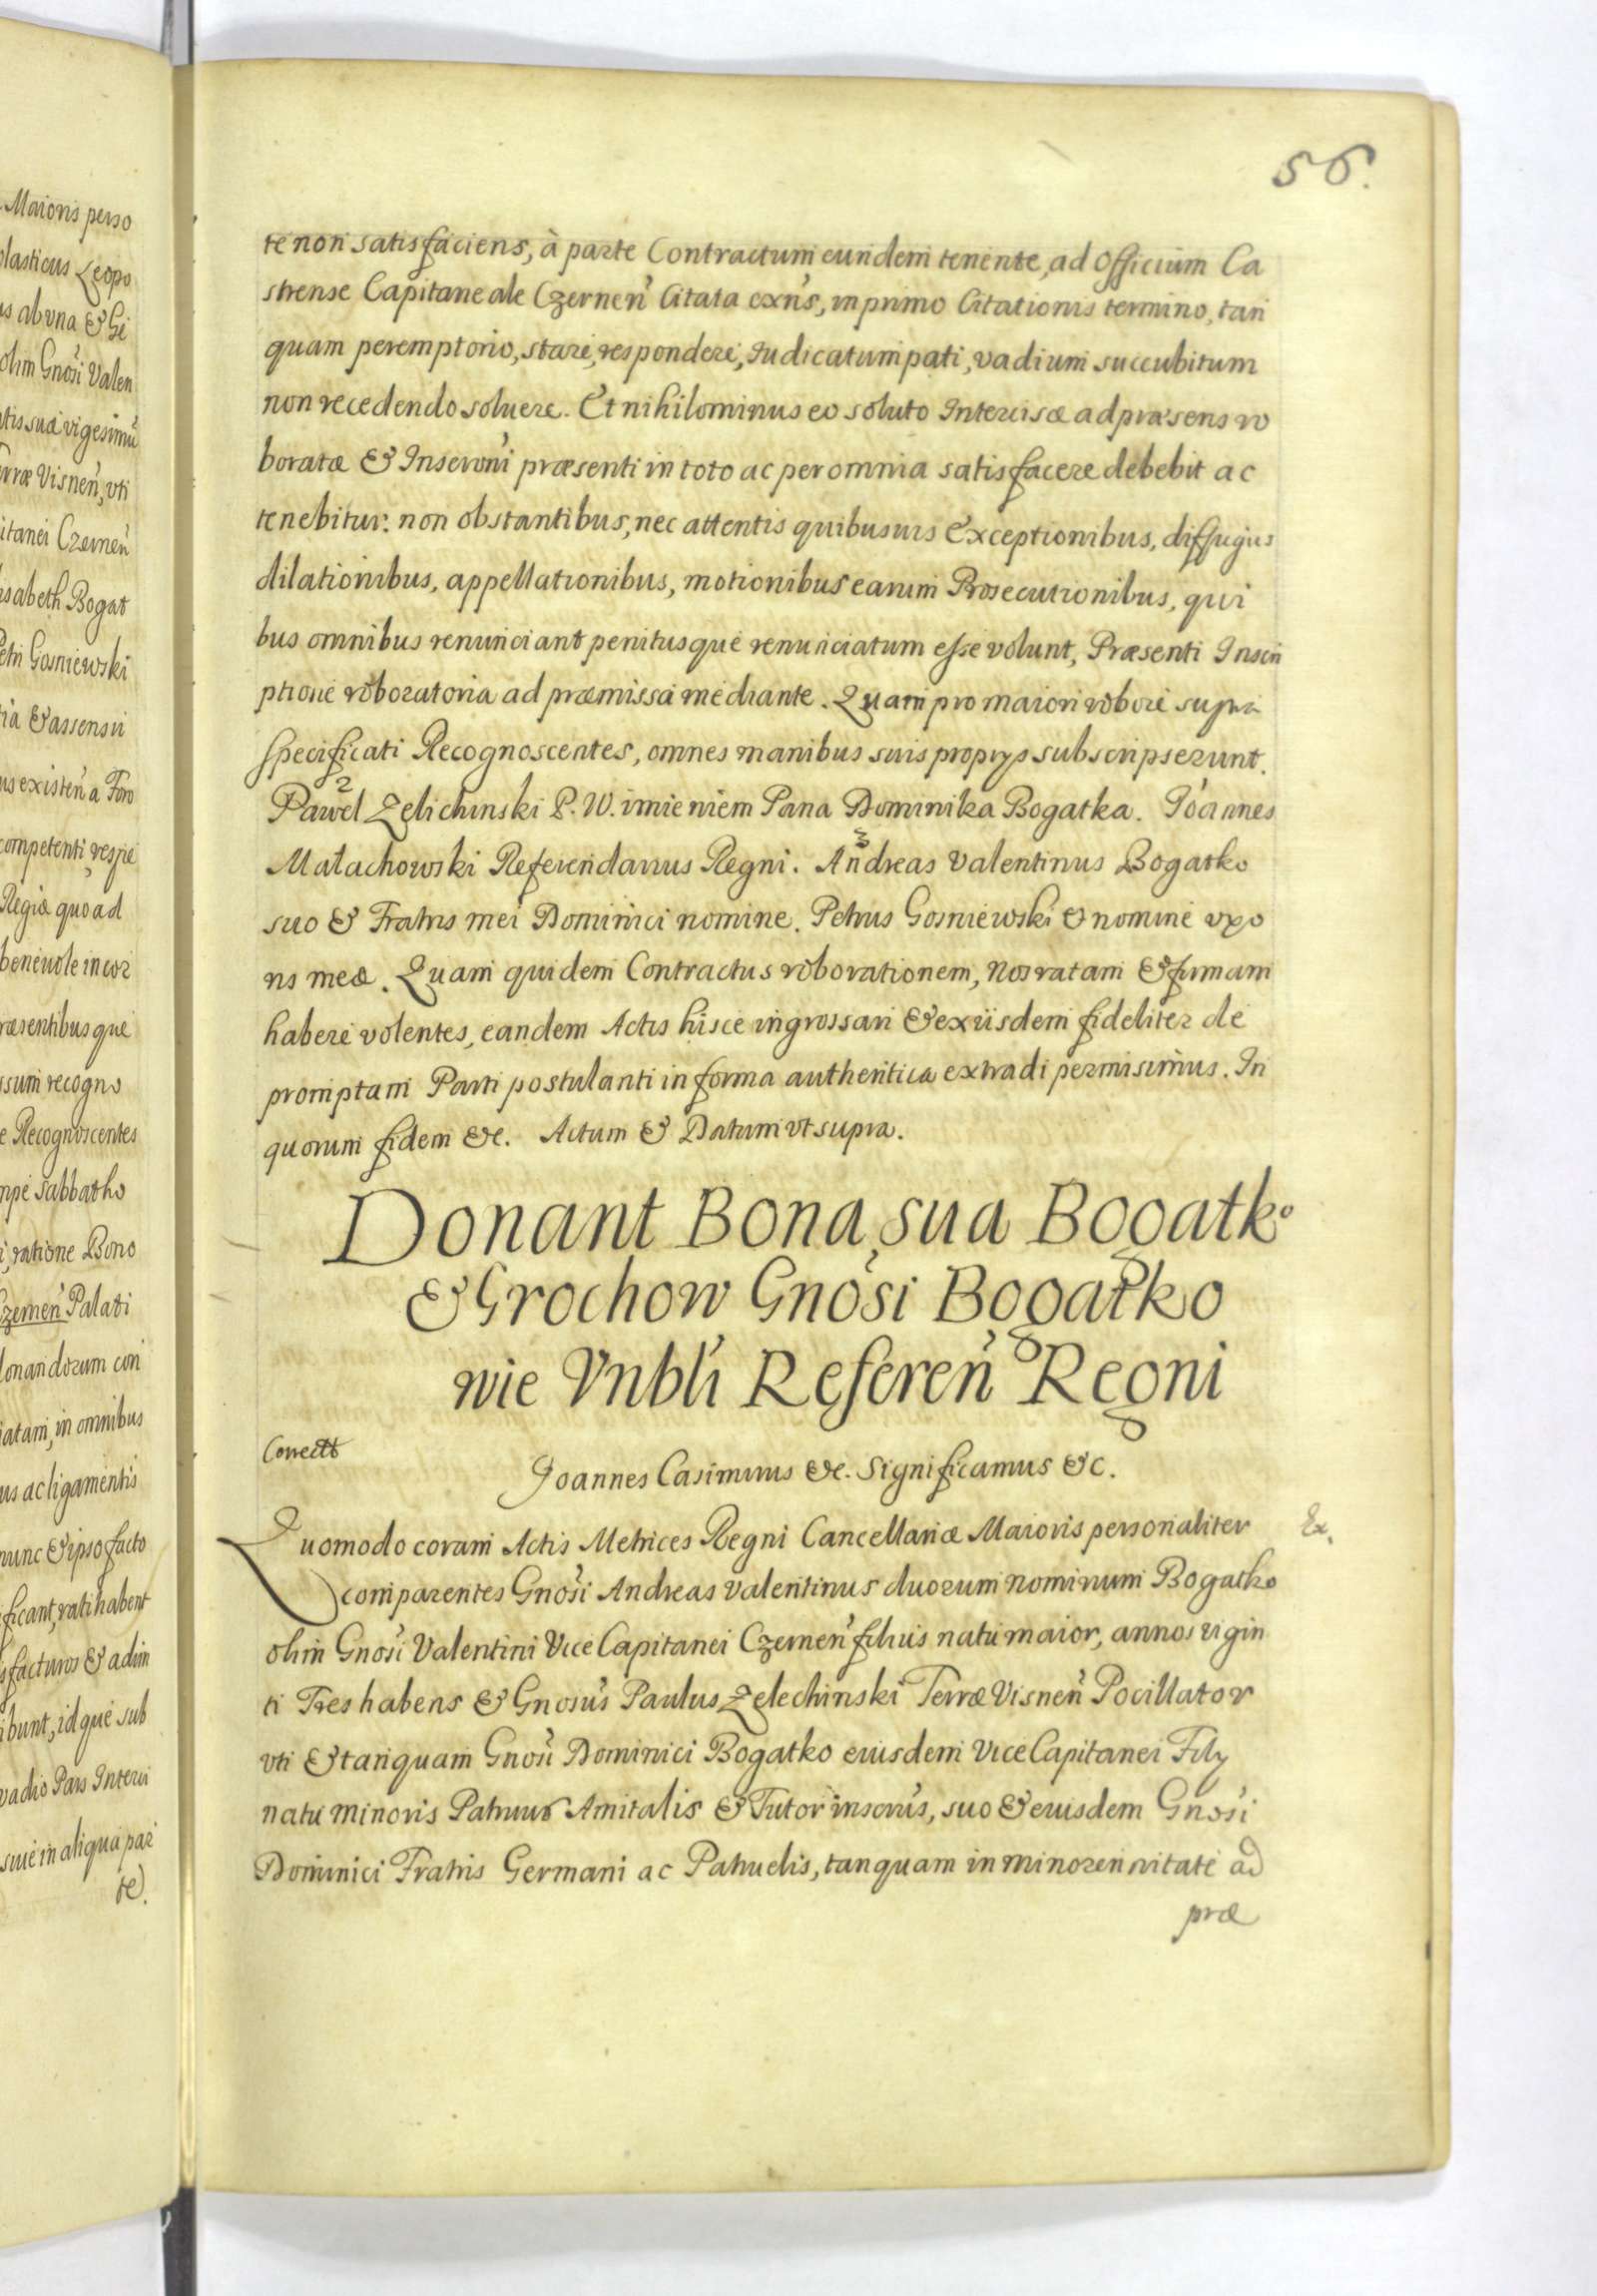 Maioris perso
lasticus Leopo
is ab una & Gi
olim Gnosi Valen
tis suæ vigesimũ
rræ Visneñ, vti
itanei Czerneñ
isabeth Bogat
etri Gosniewski
ia & assensu
us existeñ a Foro
competenti, respe
Regiæ quoad
benevole in cor
ræsentibusque
ssum recogno
e Recognoscentes
npe Sabbatho
i, ratione Bono
Czerneñ Palati
donandorum con
iatam, in omnibus
us ac ligamentis
nunc & ipso facto
ificant, ratihabent
sfacturos & adim
ibunt, idque sub
vadio Pars Interci
siue in aliqua par
te.
56.
te non satisfaciens, à parte Contractum eundem tenente, ad Officium Ca
strense Capitaneale Czerneñ Citata exñs, in primo Citationis termino, tan
quam peremptorio, stare, respondere, Iudicatum pati, vadium succubitum
non recedendo soluere. Et nihilominus eo soluto Intercisæ ad præsens ro
boratæ & Inscroñi præsenti in toto ac per omnia satisfacere debebit ac
tenebitur: non obstantibus, nec attentis quibusuis Exceptionibus, diffugiis
dilationibus, appellationibus, motionibus earum Prosecutionibus, qui
bus omnibus renunciant penitusque renunciatum esse volunt, Præsenti Inscri
ptione roboratoria ad præmissa mediante. Quam pro maiori robore supra
specificati Recognoscentes, omnes manibus suis proprys subscripserunt.
Pawel Zelichinski P. W. imieniem Pana Dominika Bogatka. Ioannes
Małachowski Referendarius Regni. Andreas Valentinus Bogatko
suo & Fratris mei Dominici nomine. Petrus Gosniewski & nomine vxo
ris meæ. Quam quidem Contractus roborationem, Nos ratam & firmam
habere volentes, eandem Actis hisce ingrossari & ex iisdem fideliter de
promptam Parti postulanti in forma authentica extradi permisimus. In
quorum fidem &c. Actum & Datum vt supra.
Donant Bona sua Bogatko
& Grochow Gnosi Bogatko
wie Vnbli Refereñ Regni
Correctt
Joannes Casimirus &c. Significamus &c.
Quomodo coram Actis Metrices Regni Cancellariæ Maioris personaliter
Ex.
comparentes Gnosi Andreas Valentinus duorum nominum Bogatko
olim Gnosi Valentini Vice Capitanei Czerneñ filius natu maior, annos vigin
ti Tres habens & Gnosus Paulus Zelechinski Terræ Visneñ Pocillator
vti & tanquam Gnosi Dominici Bogatko eiusdem Vice Capitanei Fily
natu minoris Patruus Amitalis & Tutor inscrus, suo & eiusdem Gnosi
Dominici Fratris Germani ac Patruelis, tanquam in minorennitate ad
præ